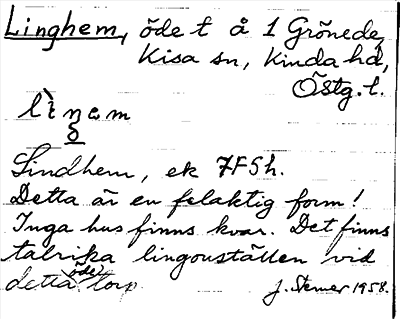 Linghem, öde t å 1 Grönede,
Kisa sn, Kinda hd,
Östg. l.
lìṇem
Lindhem, ek 7F5h.
Detta är en felaktig form!
Inga hus finns kvar. Det finns
talrika lingonställen vid
detta öde torp
J. Sterner 1958.